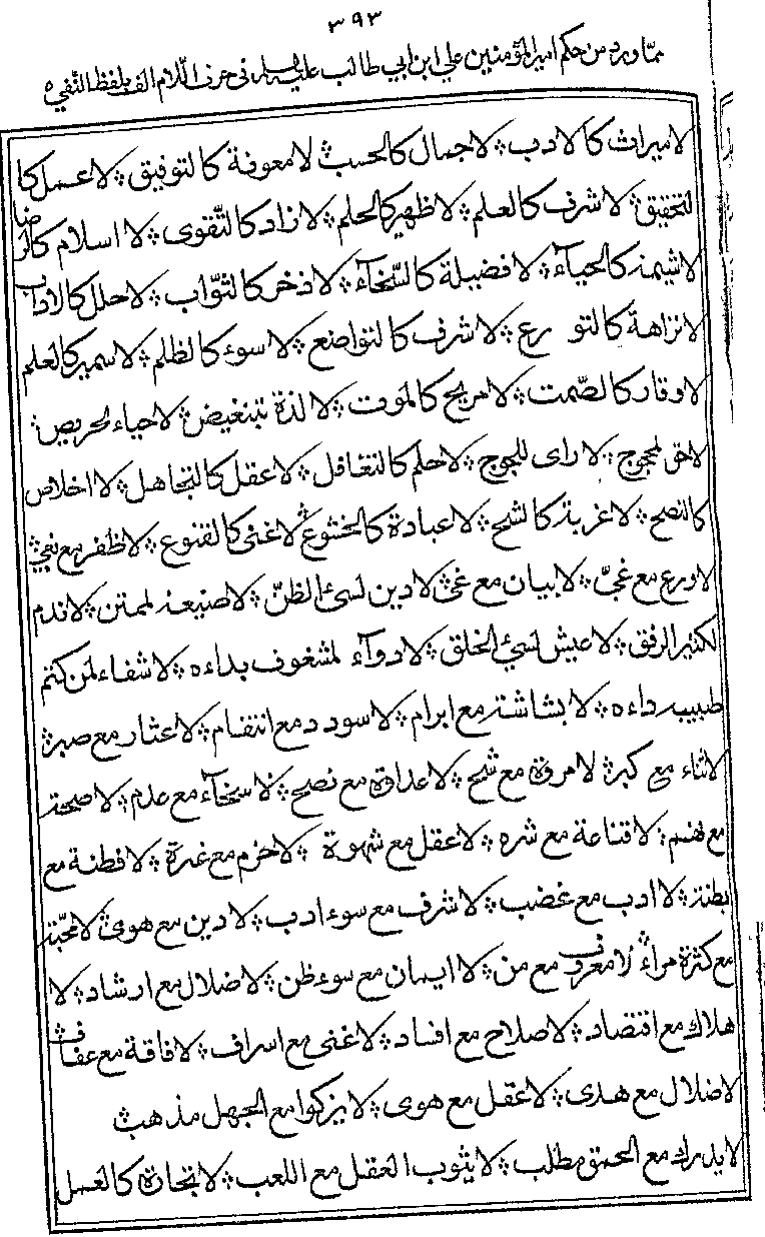 ٣٩٣
مما ورد من حكم امير المؤمنين علي ابن ابي طالب عليه السلام في حرف اللام الف بلفظ النفي
لا ميراث كالادب لا جمال كالحسب لا معونة كالتوفيق لا عمل كا
لتحقيق لا شرف كالعلم لا ظهير كالحلم لا زاد كالتقوى لا اسلام كالرضا
لا شيمة كالحياء لا فضيلة كالسخاء لا ذخر كالثواب لا حلل كالاداب
لا نزاهة كالتورع لا شرف كالتواضع لا سوء كالظلم لا سمير كالعلم
لا وقار كالصمت لا مريح كالموت لا لذة بتنغيض لا حياء لحريص
لا حق لمحجوج لا راى للجوج لا حلم كالتغافل لا عقل كالتجاهل لا اخلاص
كالنصح لا غربة كالشح لا عبادة كالخشوع لا غنى كالقنوع لا ظفر مع بغي
لا ورع مع غي لا بيان مع عي لا دين لسئ الظن لا صنيعة لممتن لا ندم
لكثير الرفق لا عيش لسيئ الخلق لا دواء لمشغوف بداءه لا شفاء لمن كتم
طبيبه داءه لا بشاشة مع ابرام لا سودد مع انتقام لا عثار مع صبر
لا ثناء مع كبر لا مروة مع شح لا عداوة مع نصح لا سخاء مع عدم لا صحة
مع نهم لا قناعة مع شره لا عقل مع شهوة لا حزم مع غرة لا فطنة مع
بطنة لا ادب مع غضب لا شرف مع سوء ادب لا دين مع هوى لا محبة
مع كثرة مراء لا معروف مع من لا ايمان مع سوء ظن لا ضلال مع ارشاد لا
هلاك مع اقتصاد لا صلاح مع افساد لا غنى مع اسراف لا فاقة مع عفاف
لا ضلال مع هدى لا عقل مع هوى لا يزكوا مع الجهل مذهب
لا يدرك مع الحمق مطلب لا يثوب العقل مع اللعب لا تجارة كالعمل